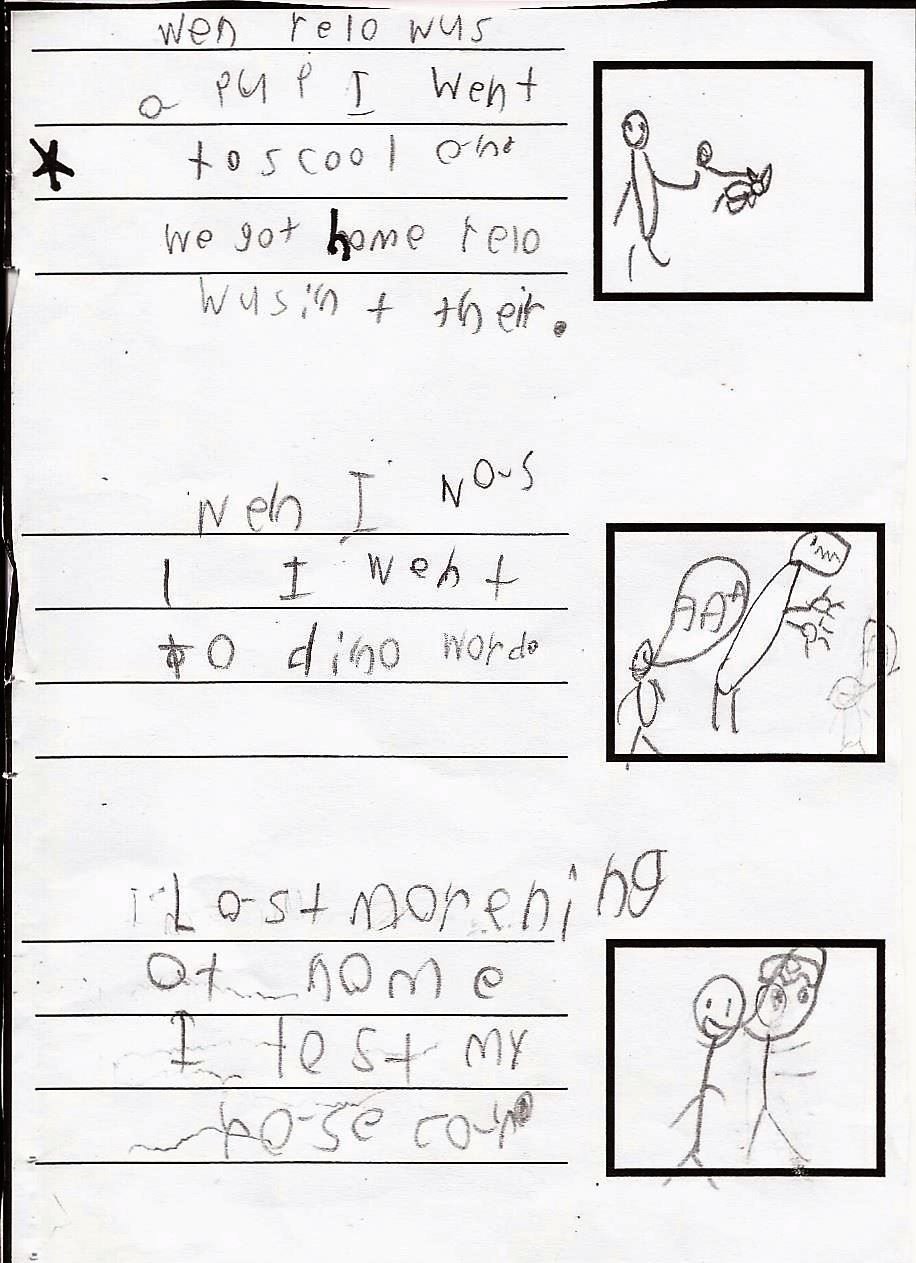 wen relo wus
a pup I went
to scool and
we got home relo
wusint their.
wen I was
1 I went
to dino worde
AAA
Last morening
at home
I test my